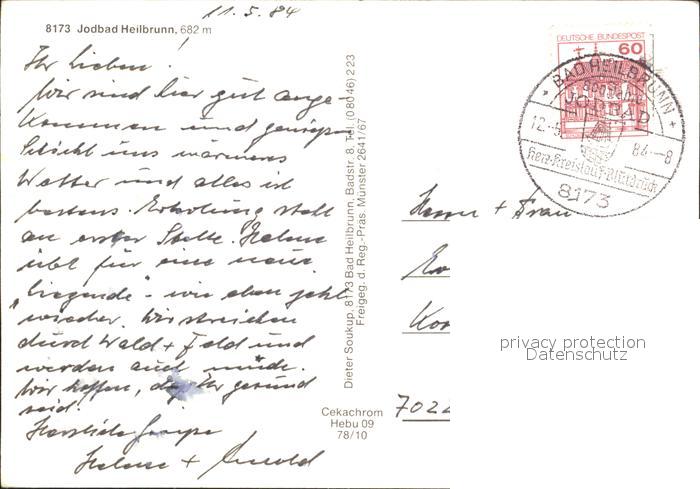 11. 5. 84
8173 Jodbad Heilbrunn, 682 m
Ihr Lieben!
Wir sind hier gut ange-
kommen und
uns wärmeres
Wetter und alles ist
bestens. Erholung steht
an erster Stelle. Helene
übt für eine neue
"Liegende" - wie eben jetzt
wieder. Wir streichen
durch Wald + Feld und
werden auch müde.
Wir hoffen, daß Ihr gesund
seid.
Herzliche Grüße
Helene + Arnold
Dieter Soukup, 8173 Bad Heilbrunn, Badstr. 8, Tel. (08046) 223
Freigeg. d. Reg.-Präs. Münster 2641/67
Cekachrom
Hebu 09
78/10
DEUTSCHE BUNDESPOST
60
BAD HEILBRUNN
JODBAD
12.-5. 84--8
Herz-Kreislauf-
8173
Herrn + Frau
702
privacy protection
Datenschutz